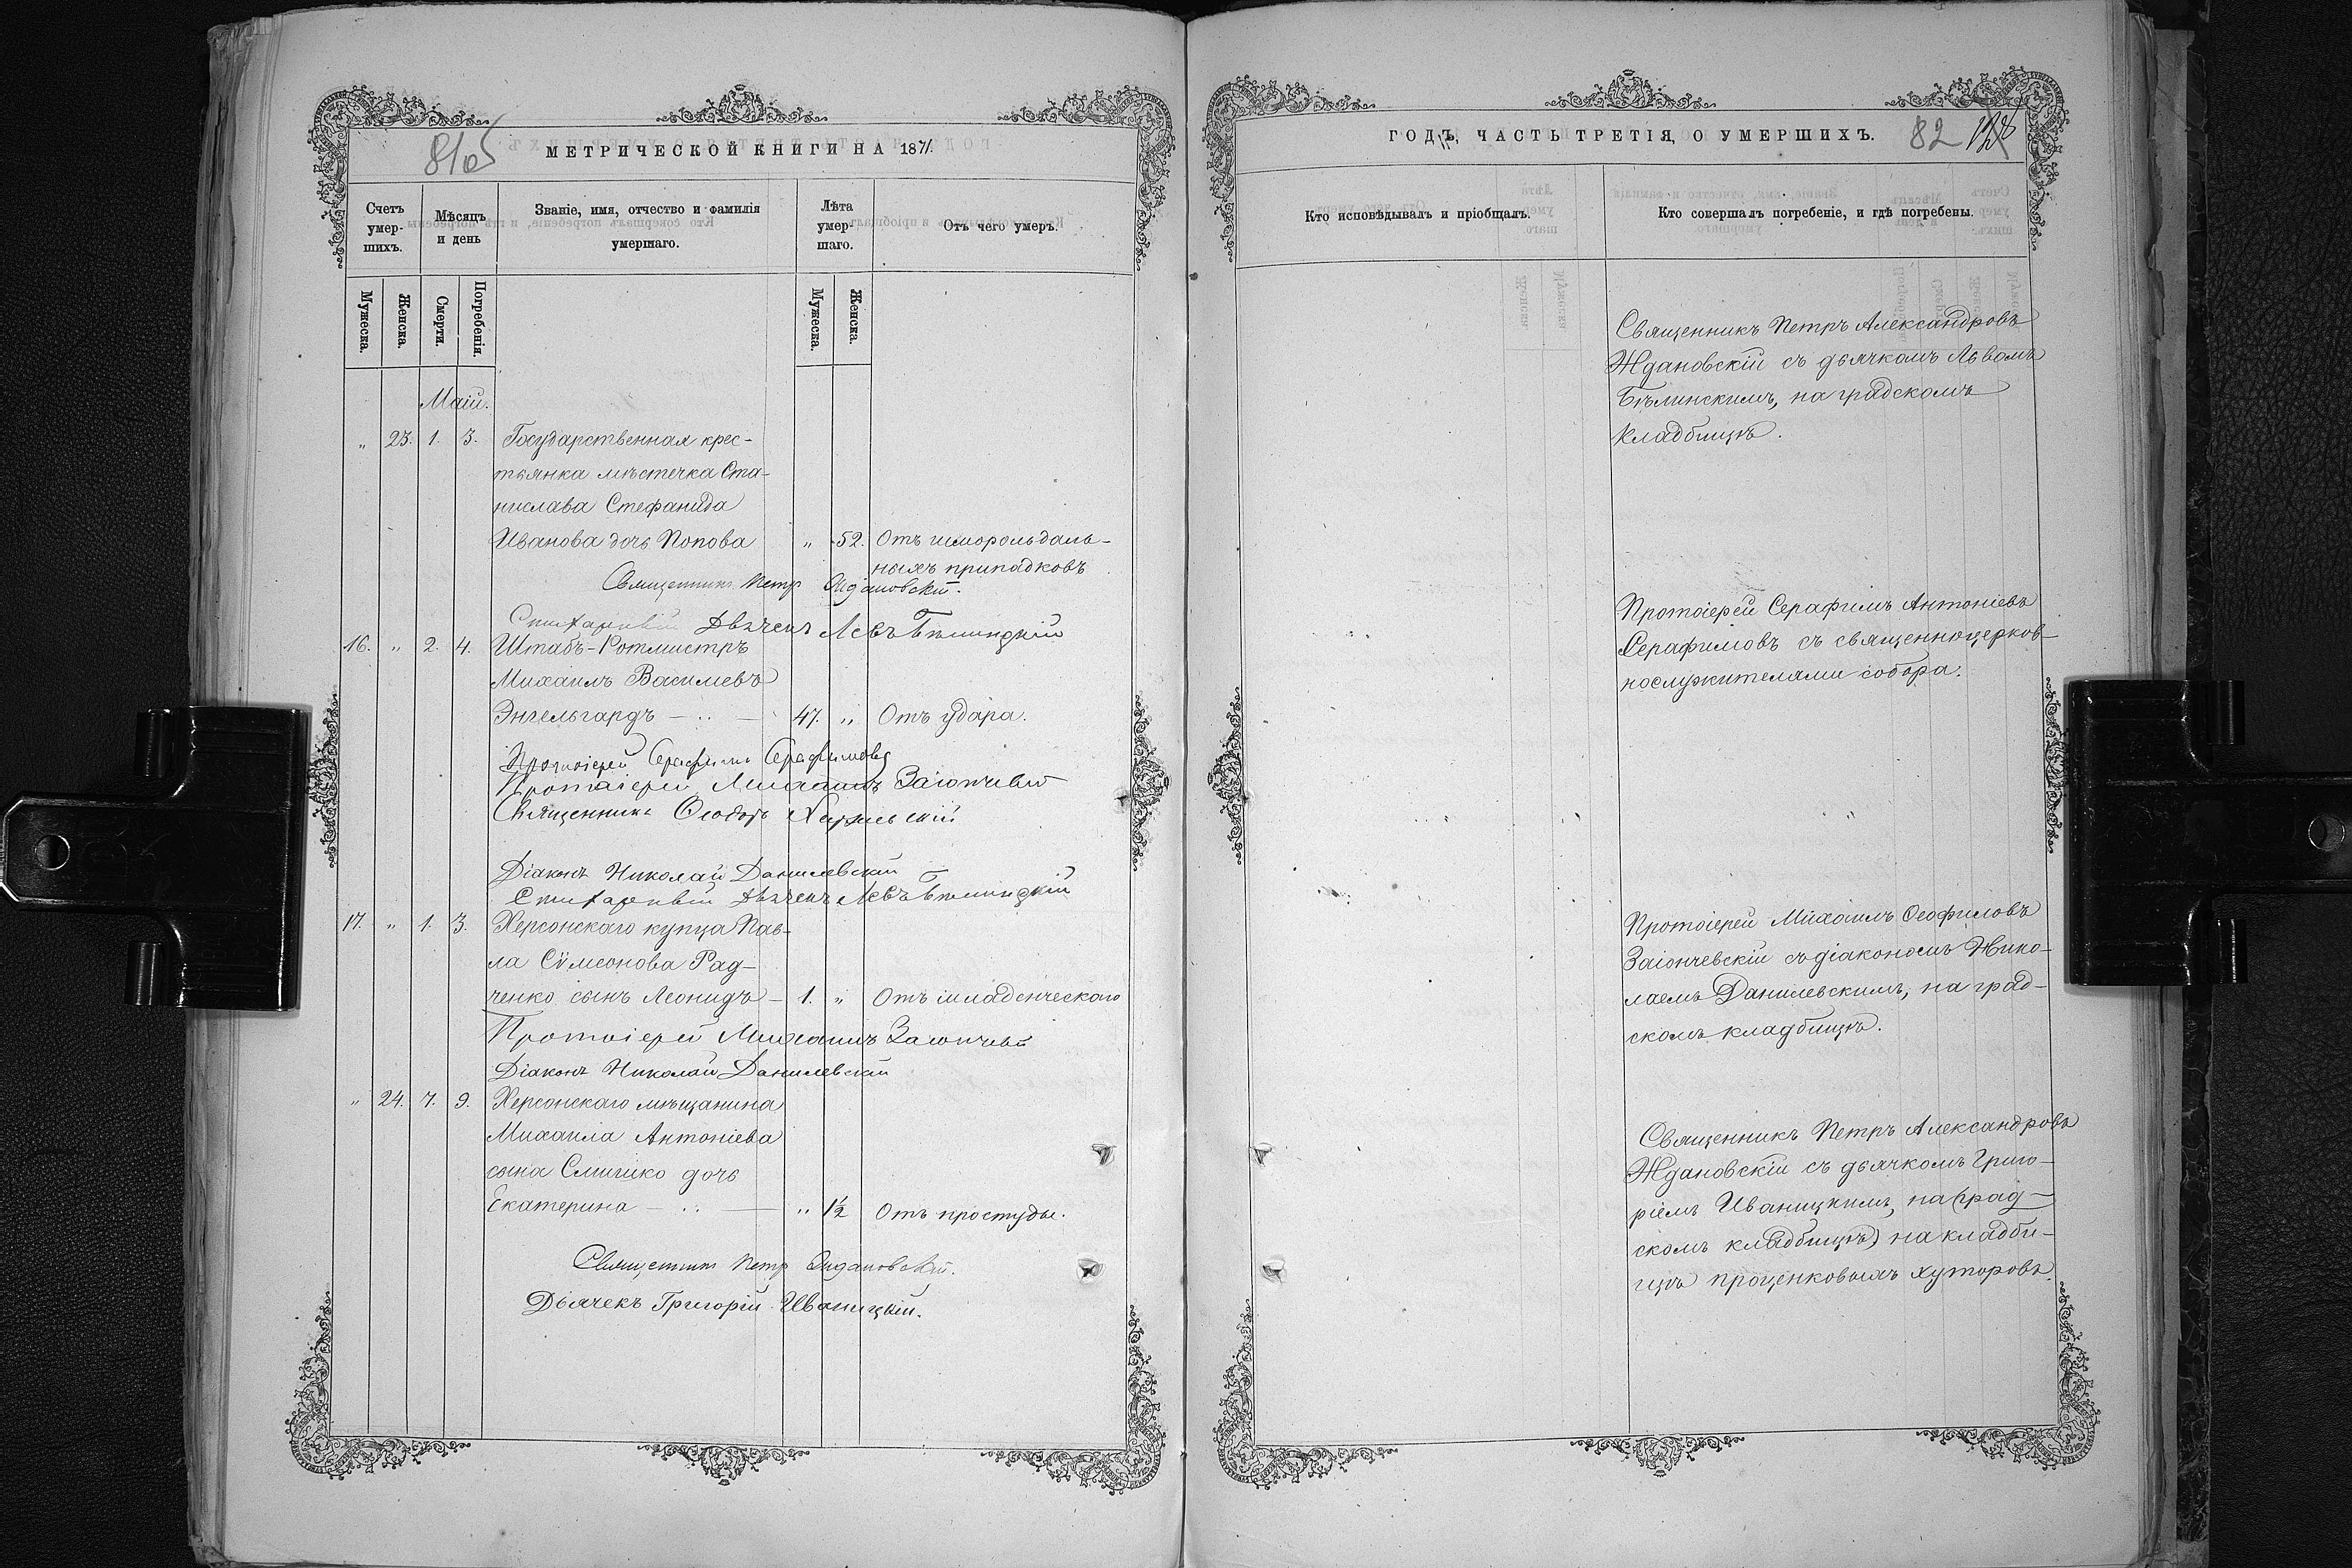 МЕТРИЧЕСКОЙ КНИГИ НА 1871.
Счетъ умер-шихъ.
Мѣсяцъ и день
Званіе, имя, отчество и фамилія умершаго.
Лѣта умер-шаго.
Отъ чего умеръ.
Мужеска.
Женска.
Смерти.
Погребенія.
Мужеска.
Женска.
Маій.
„ 23. 1. 3. Государственная крес-
тьянка мѣстечка Ста-
нислава Стефанида
Иванова дочь Попова „ 52. Отъ геморольдаль-
ныхъ припадковъ
Священникъ Петр Ждановскій.
Стихарный Дьячекъ Левъ Бѣлинскій
16. „ 2. 4. Штабъ-Ротмистръ
Михаилъ Василіевъ
Энгельгардъ — „ — 47. „ Отъ удара.
Протоіерей Серафимъ Серафимовъ
Протоіерей Михаилъ Заіончевскій
Священникъ Ѳеодоръ
Діаконъ Николай Данилевскій
Стихарный Дьячекъ Левъ Бѣлинскій
17. „ 1. 3. Херсонскаго купца Пав-
ла Сѵмеонова Рад-
ченко сынъ Леонидъ — 1. „ Отъ младенческаго
Протоіерей Михаилъ Заіончевскій
Діаконъ Николай Данилевскій
„ 24. 7. 9. Херсонскаго мѣщанина
Михаила Антоніева
сына дочь
Екатерина — „ — „ 1½ Отъ простуды.
Священникъ Петр Ждановскій.
Дьячекъ Григорій Иваницкій.
ГОДЪ, ЧАСТЬ ТРЕТІЯ, О УМЕРШИХЪ. 82
Кто исповѣдывалъ и пріобщалъ.
Кто совершалъ погребеніе, и гдѣ погребены.
Священникъ Петръ Александровъ
Ждановскій съ дьячкомъ Львомъ
Бѣлинскимъ, на градскомъ
кладбищѣ.
Протоіерей Серафимъ Антоніевъ
Серафимовъ съ священноцерков-
нослужителями собора.
Протоіерей Михаилъ Ѳеофиловъ
Заіончевскій съ діакономъ Нико-
лаемъ Данилевскимъ, на град-
скомъ кладбищѣ.
Священникъ Петръ Александровъ
Ждановскій съ дьячкомъ Григо-
ріемъ Иваницкимъ, на (град-
скомъ кладбищѣ) на кладби-
щѣ проценковыхъ хуторовъ.